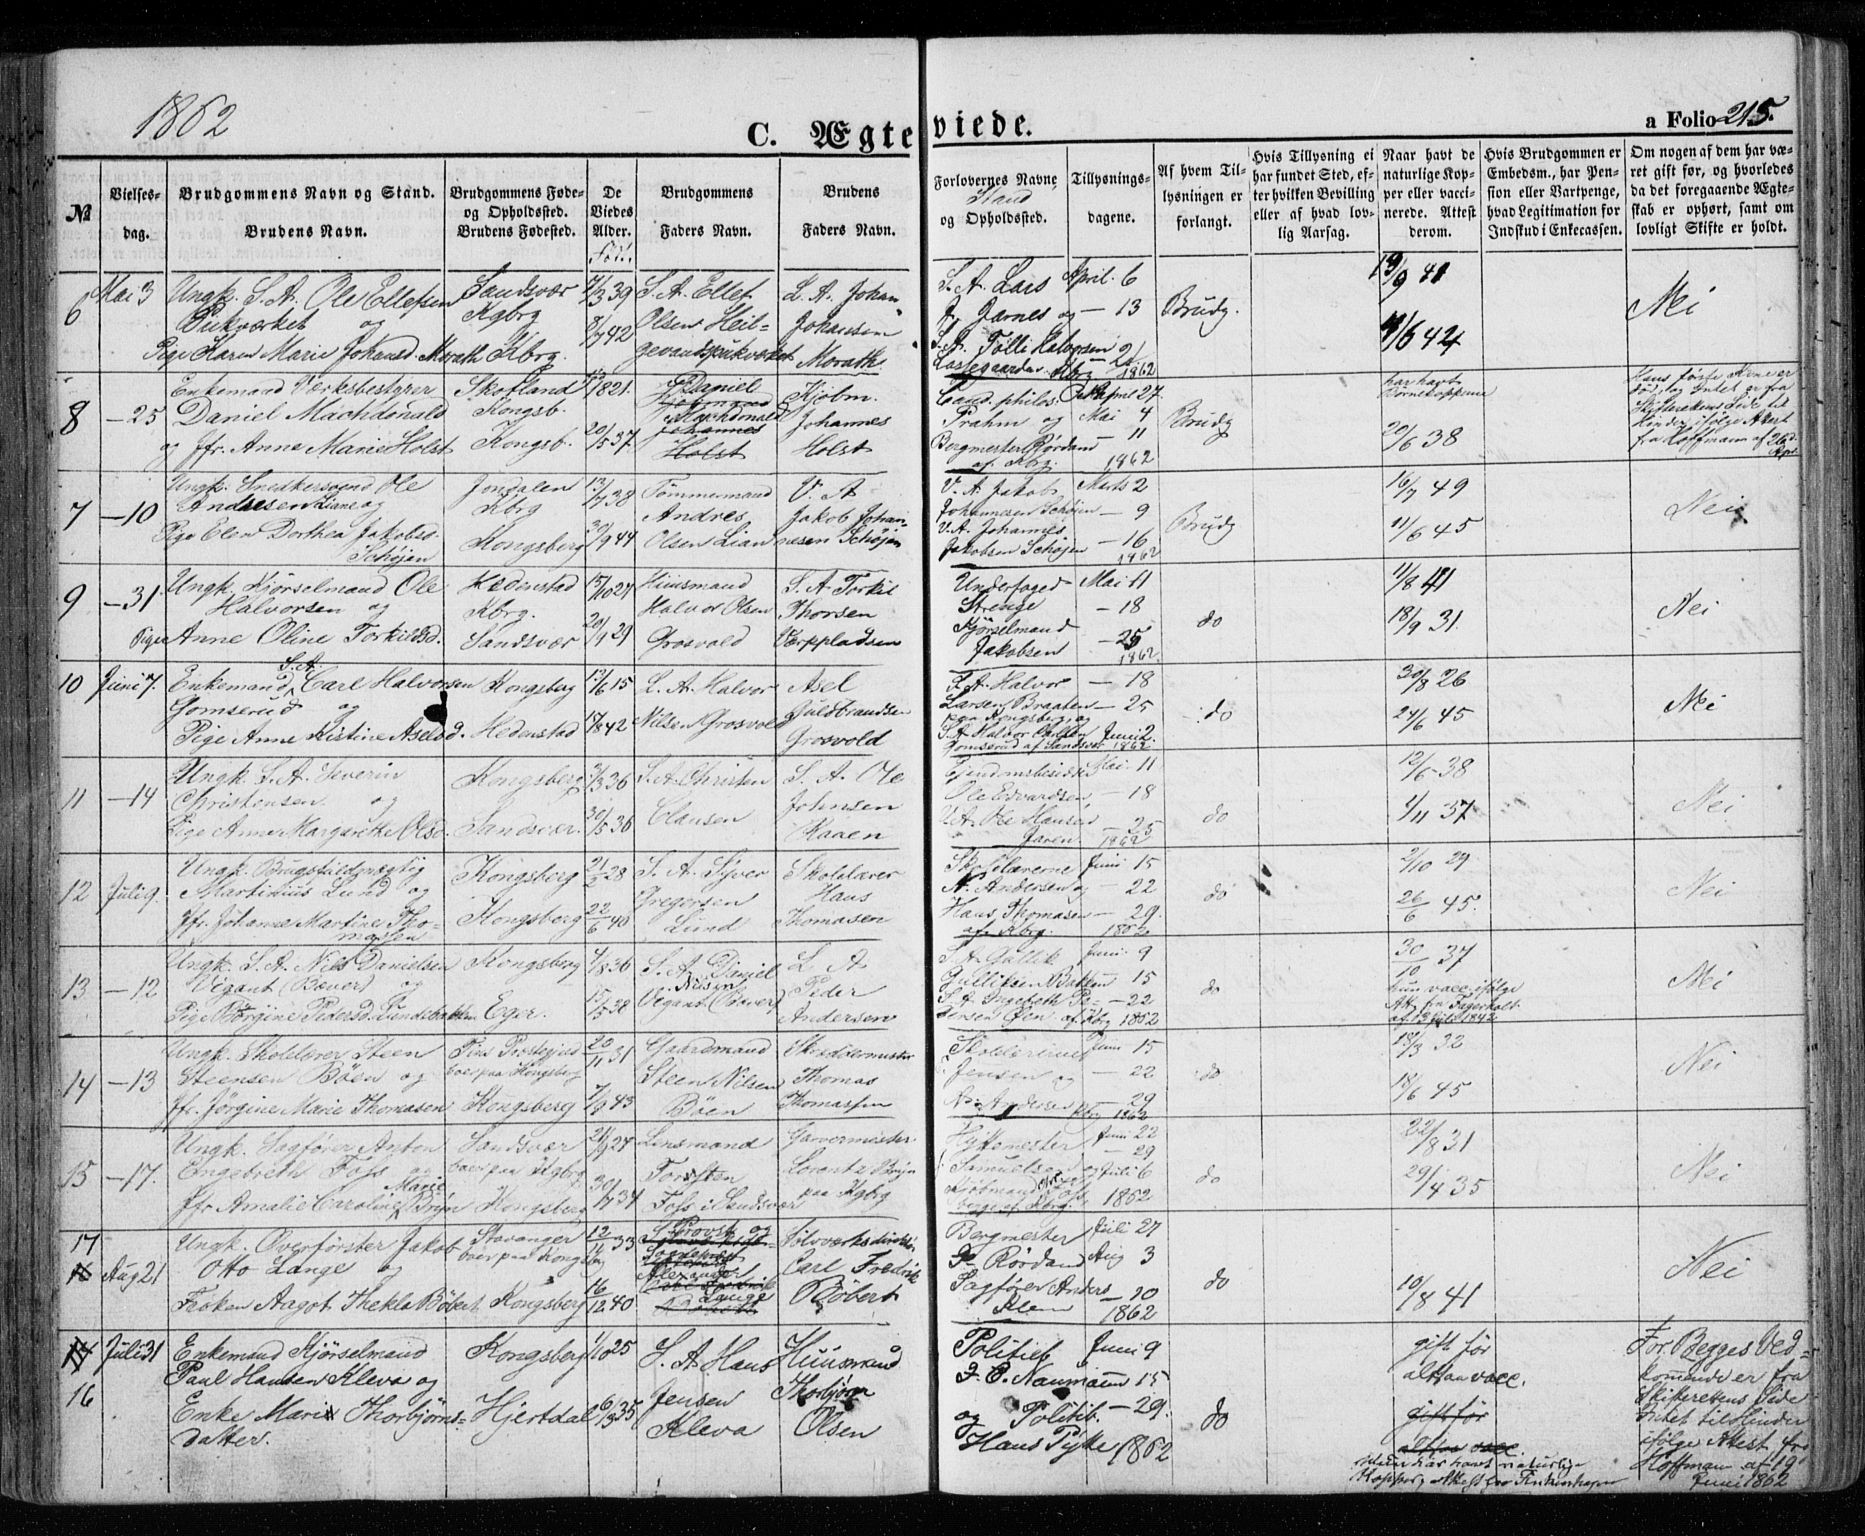 1862
C. Ægteviede.
a Folio 215.
№
Vielses-
dag.
Brudgommens Navn og Stand.
Brudens Navn.
Brudgommens Føde-
og Opholdssted.
Brudens Fødested.
De
Viedes
Alder.
Født.
Brudgommens
Faders Navn.
Brudens
Faders Navn.
Forlovernes Navne,
Stand
og Opholdssted.
Tillysnings-
dagene.
Af hvem Til-
lysningen er
forlangt.
Hvis Tillysning ei
har fundet Sted, ef-
ter hvilken Bevilling
eller af hvad lov-
lig Aarsag.
Naar havt de
naturlige Kop-
per eller vacci-
nerede. Attest
derom.
Hvis Brudgommen er
Embedsm., har Pen-
sion eller Vartpenge,
hvad Legitimation for
Indskud i Enkecassen.
Om nogen af dem har væ-
ret gift før, og hvorledes
da det foregaaende Ægte-
skab er ophørt, samt om
lovligt Skifte er holdt.
6
Mai 3
Ungk. S. A. Ole Ellefsen
Pukværket og
Pige Karen Marie Johansd. Morath
Sandsvær
Kgbrg
Kbrg.
7/3 39
8/7 42
S. A. Ellef
Olsen Heil-
gevandspukværket
L. A. Johan
Johansen
Morath
S. A. Lars
J. Jarnes og
S. A. Tolli Halvorsen
Lassegaarden Kbrg
April 6
- 13
- 21
1862
Brudg.
19/9 41
4/6 44
Nei
8
- 25
Enkemand Værksbestyrer
Daniel Machdonald
og Jfr. Anne Marie Holst
Skotland
Kongsb.
Kongsb.
1821.
20/5 37
Daniel
Kjøbmand
Machdonald
Johannes
Holst
Kjøbm.
Johannes
Holst
Cand. philos.
Prahm og
Bergmester Rørdand
af Kbrg.
April 27.
Mai 4
- 11
1862
Brudg
har havt
Børnekopperne
20/6 38
Hans første Kone er
død, og Intet er fra
Skifterettens Side til
Hinder ifølge Attest
fra Hoffmann af 26d
Apr.
7
- 10
Ungk. Snedkersvend Ole
Andresen Liane og
Pige Elen Dorthea Jakobsd.
Schøjen
Jondalen
Kbrg
Kongsberg
13/7 38
30/9 44
Tømmermand
Andres
Olsen Lian
V. A
Jakob Johan-
nesen Schøjen
V. A. Jakob
Johannesen Schøjen
V. A. Johannes
Jakobsen Schøjen
Marts 2
- 9
- 16
1862
Brudg
16/7 49
11/6 45
Nei
9
- 31
Ungk. Kjørselmand Ole
Halvorsen og
Pige Anne Oline Torkildsd.
Hedenstad
Kbrg.
Sandsvær
15/10 27
20/9 29
Huusmand
Halvor Olsen
Grosvold
S. A. Torkil
Thorsen
Værppladsen
Underfoged
Strenge
Kjørselmand
Jakobsen
Mai 11
- 18
- 25
1862.
do
11/8 41
18/9 31
Nei
10
Juni 7.
Enkemand S. A. Carl Halvorsen
Gomserud og
Pige Anne Kistine Aselsd.
Kongsberg
Hedenstad
13/6 15
17/8 42
L. A. Halvor
Nilsen Grosvold
Asel
Guldbrandsen
Grosvold
F. A. Halvor
Larsen Braaten
paa Kongsberg, og
S. A. Halvor Carlsen
Gomserud af Sandsvær
- 18
- 25
Juni 2.
1862
do
30/8 26
24/6 45
Nei
11
- 14
Ungk. S. A. Severin
Christensen og
Pige Anne Margarethe Olsd.
Kongsberg
Sandsvær.
3/3 36
30/5 36
S. A. Christen
Clausen
S. A. Ole
Johnsen
Kaaen
Ejendomsbesidder
Ole Edvardsen
V. A. Ole Hansen
Jaren
Mai 11
- 18
- 25
1862
do
12/6 38
1/11 37
Nei
12
Juli 9.
Ungk. Brugsfuldmægtig
Martinius Lund og
Jfr. Johanne Martine Tho-
massen
Kongsberg
Kongsberg
21/2 28
22/6 40
S. A. Syver
Gregersen
Lund
Skolelærer
Hans
Thomasen
Skolelærerne
N. Andersen og
Hans Thomasen
af Kbrg.
Juni 15
- 22
- 29.
1862
do
2/10 29
26/6 45.
Nei
13
- 12
Ungk. S. A. Nils Danielsen
Vigant (Bever) og
Pige Børgine Pedersd. Lundebakken
Kongsberg
Eger.
4/8 36
15/5 38
S. A. Daniel
Nilsen
Vigant (Bever)
L A
Peder
Andersen
S. A. Gullik
Gulliksen Bakken
S. A. Ingebreth Pe-
dersen Øen af Kbrg
Juni 9
15
- 22
1862
do
30/10 37
hun vacc. ifølge
Att. fra Fagerholt
af 13 Juli 1842
Nei
14
- 13
Ungk. Skolelærer Steen
Steensen Bøen og
Jfr. Jørgine Marie Thomasen
Tins Præstegjeld
boer paa Kongsberg
Kongsberg
20/11 31
7/8 43
Gaardmand
Steen Nilsen
Bøen
Skreddermester
Thomas
Thomassen
Skolelærerne
Jensen og
N. Andersen
Kbrg
Juni 15
- 22
- 29
1862
do
18/3 32
18/6 45
Nei
15
- 17.
Ungk. Sagfører Anton
Engebreth Foss og
Jfr. Amalie Caroline Marie Bryn
Sandsvær
boer paa Kgbrg
Kongsberg
21/9 27
30/7 34
Linsmand
Torsten
Foss i Sandsvær
Garvermester
Lorentz Bryn
paa Kgbrg
Hyttemester
Samuelsen og
Kjøbmand
af Kbrg.
Juni 22
- 29
Juli 6
1862
do
22/8 31
29/4 35
Nei
17
Aug 21
Ungk. Overførster Jakob
Otto Lange og
Frøken Aagot Thekla Bøbert
Stavanger
boer paa Kongsberg
Kongsberg
12/11 33
16/12 40
Provst og
Sogneprest
Alexander
Lange
Sølvværksdirektør
Carl Fredrik
Bøbert
Bergmester
Rørdand
Sagfører Anders
Klem
Juli 27
Aug 3
- 10
1862
do
10/8 41
Nei
16
Juli 31
Enkemand Kjørselmand
Paul Hansen Kleva og
Enke Mari Thorbjørns-
datter.
Kongsberg
Hjertdal
1/10 25
6/3 35
S. A. Hans
Jensen
Kleva
Huusmand
Thorbjørn
Olsen
Politieb.
J. C. Naumann
og Politib.
Hans Tykke
Juni 9
15
- 29.
1862
do
gift før
altsaa vacc.
gift før
altsaa vacc
Hun har havt naturlige
Kopper,
For Begges Ved-
kommende er fra
Skifterettens Side
Intet til Hinder
ifølge Attest fra
Hoffman af 19
Juni 1862